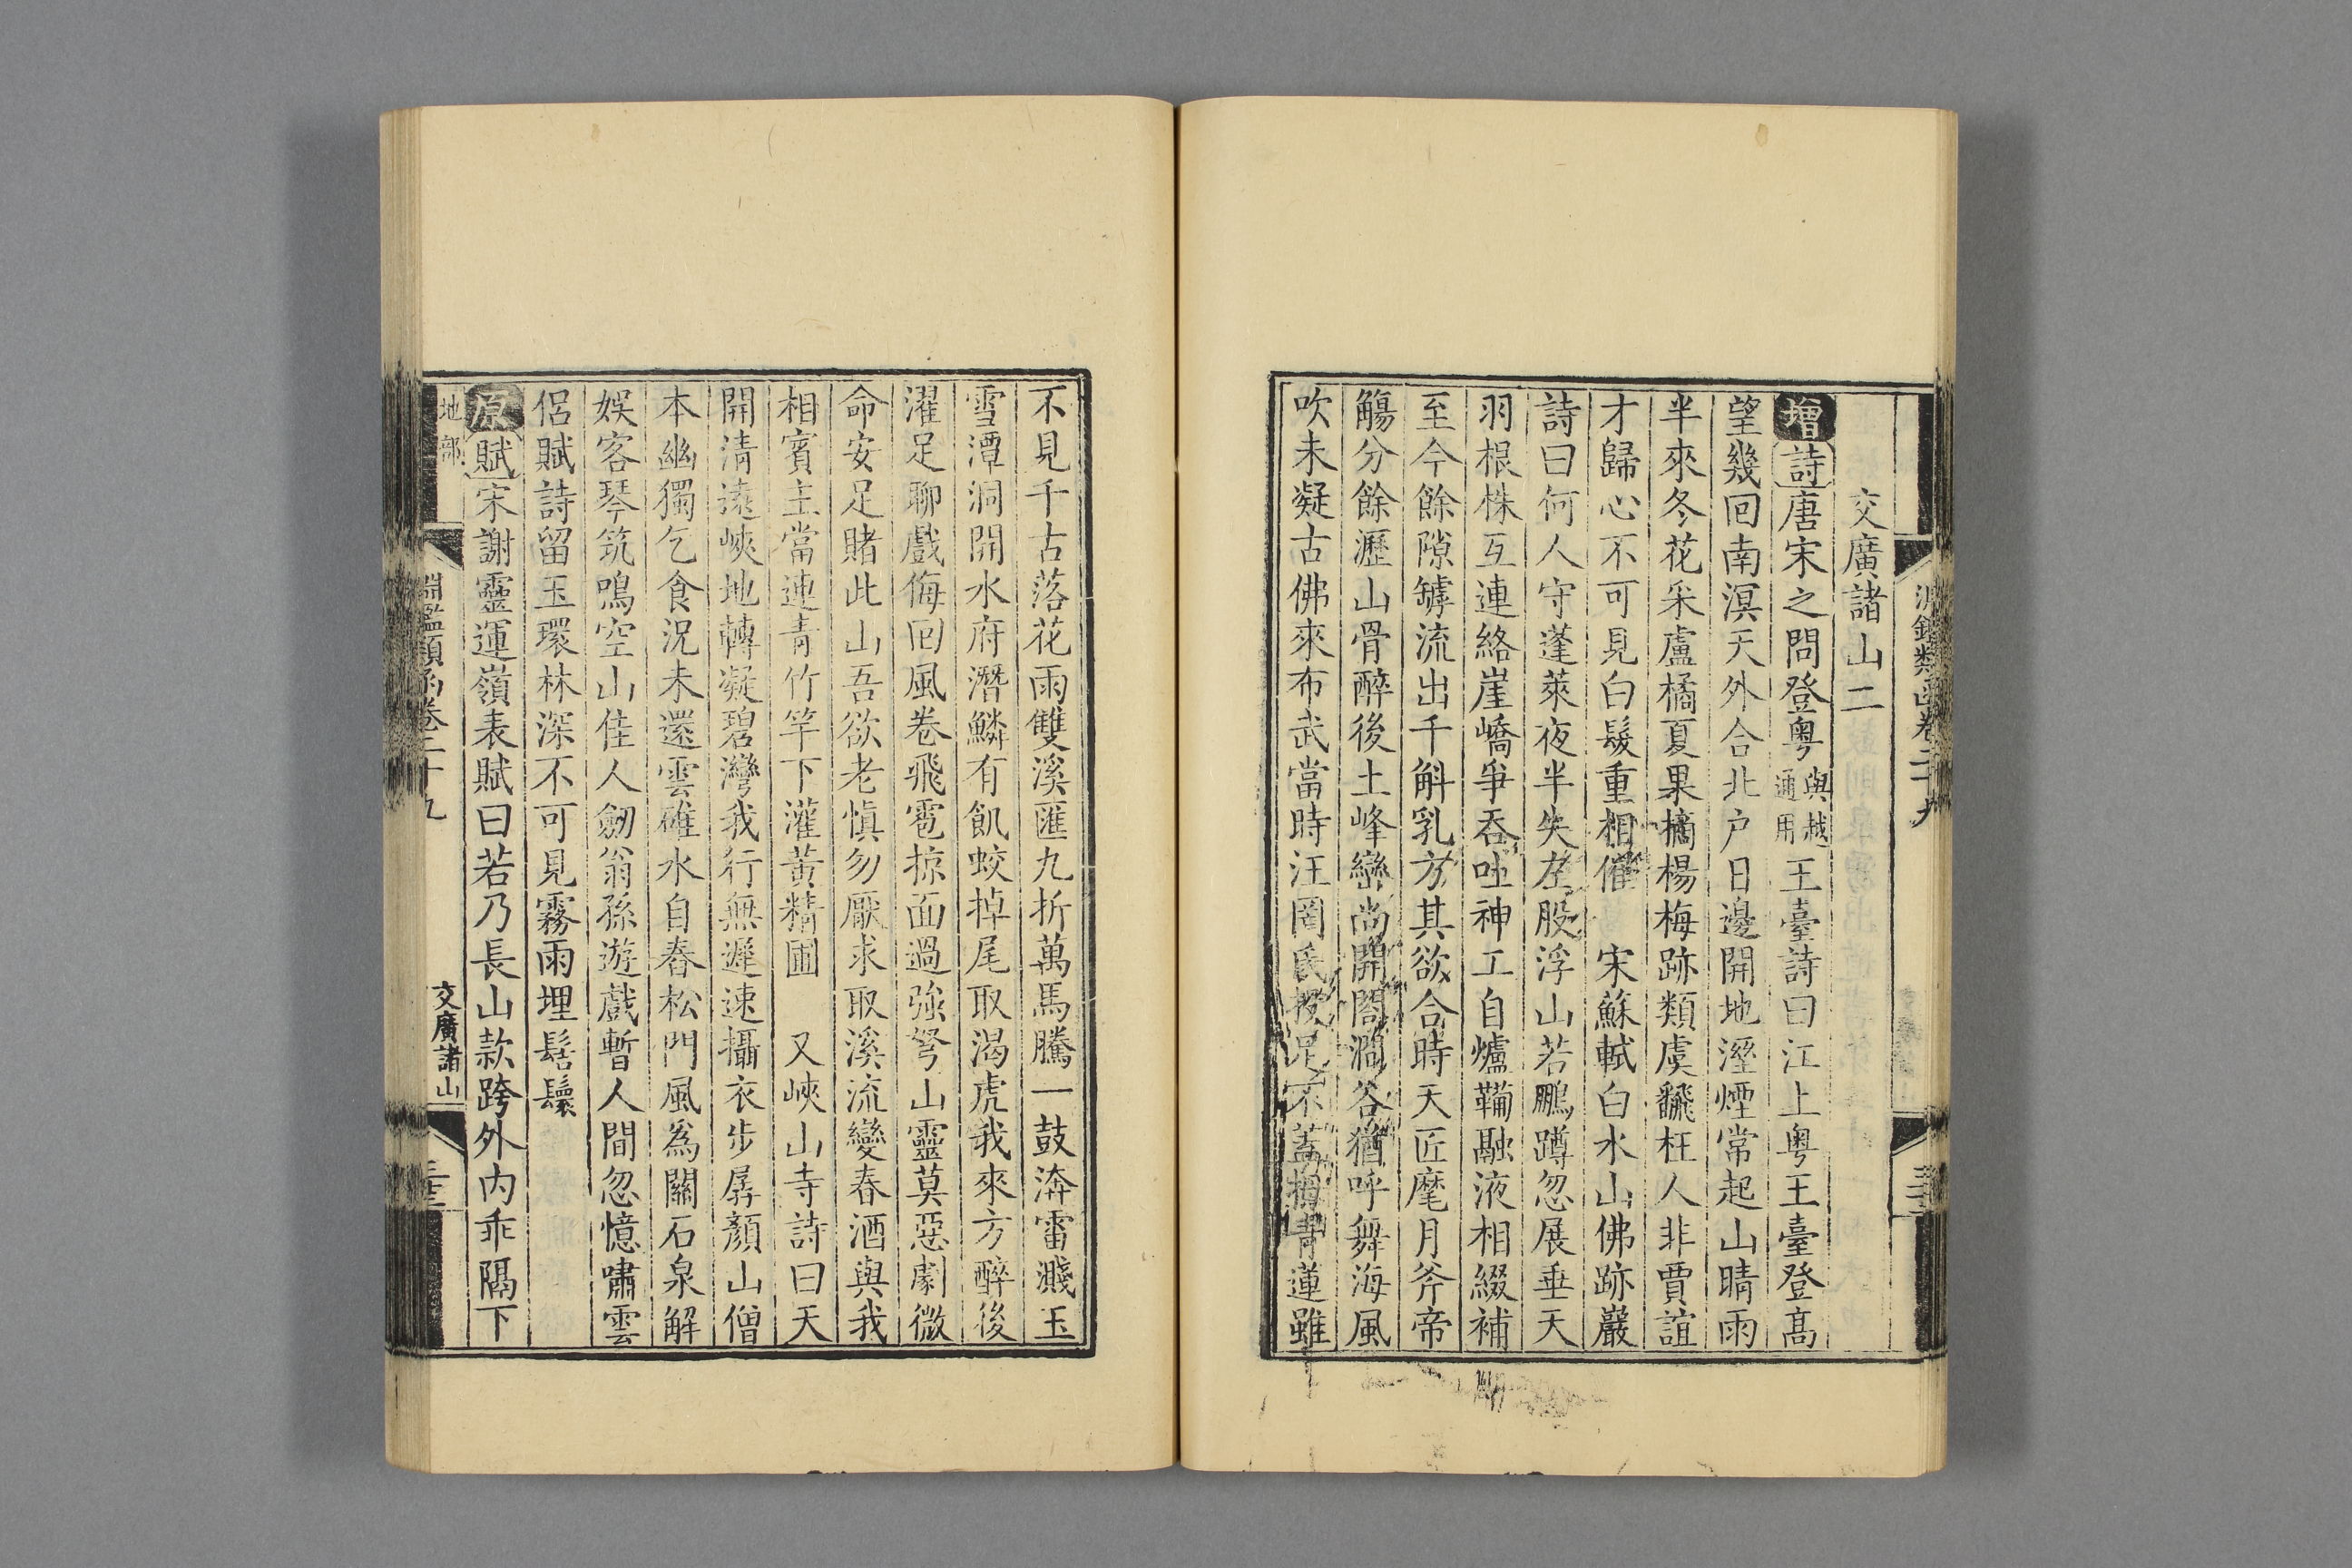 淵鑑類函卷二十九
交廣諸山二
增詩唐宋之問登粵與越通用王臺詩曰江上粵王臺登高
望幾回南溟天外合北户日邊開地溼煙常起山晴雨
半來冬花采盧橘夏果摘楊梅跡類虞飜枉人非賈誼
才歸心不可見白髮重相催　宋蘇軾白水山佛跡巖
詩曰何人守蓬萊夜半失左股浮山若鵬蹲忽展垂天
羽根株互連絡崖嶠爭吞吐神工自爐鞴融液相綴補
至今餘隙罅流出千斛乳方其欲合時天匠麾月斧帝
觴分餘瀝山骨醉後土峰巒尚開闔澗谷猶呼舞海風
吹未凝古佛來布武當時汪罔氏投足不蓋拇青蓮雖
不見千古落花雨雙溪匯九折萬馬騰一鼓奔雷濺玉
雪潭洞開水府潛鱗有飢蛟掉尾取渴虎我來方醉後
濯足聊戲侮回風卷飛雹掠面過強弩山靈莫惡劇微
命安足賭此山吾欲老慎勿厭求取溪流變春酒與我
相賓主當連青竹竿下灌黃精圃　又峽山寺詩曰天
開清遠峽地轉凝碧灣我行無遲速攝衣步孱顏山僧
本幽獨乞食況未還雲碓水自舂松門風爲關石泉解
娛客琴筑鳴空山佳人劒翁孫遊戲暫人間忽憶嘯雲
侶賦詩留玉環林深不可見霧雨埋髻鬟
原賦宋謝靈運嶺表賦曰若乃長山款跨外内乖隔下
地部
淵鑑類函卷二十九
交廣諸山